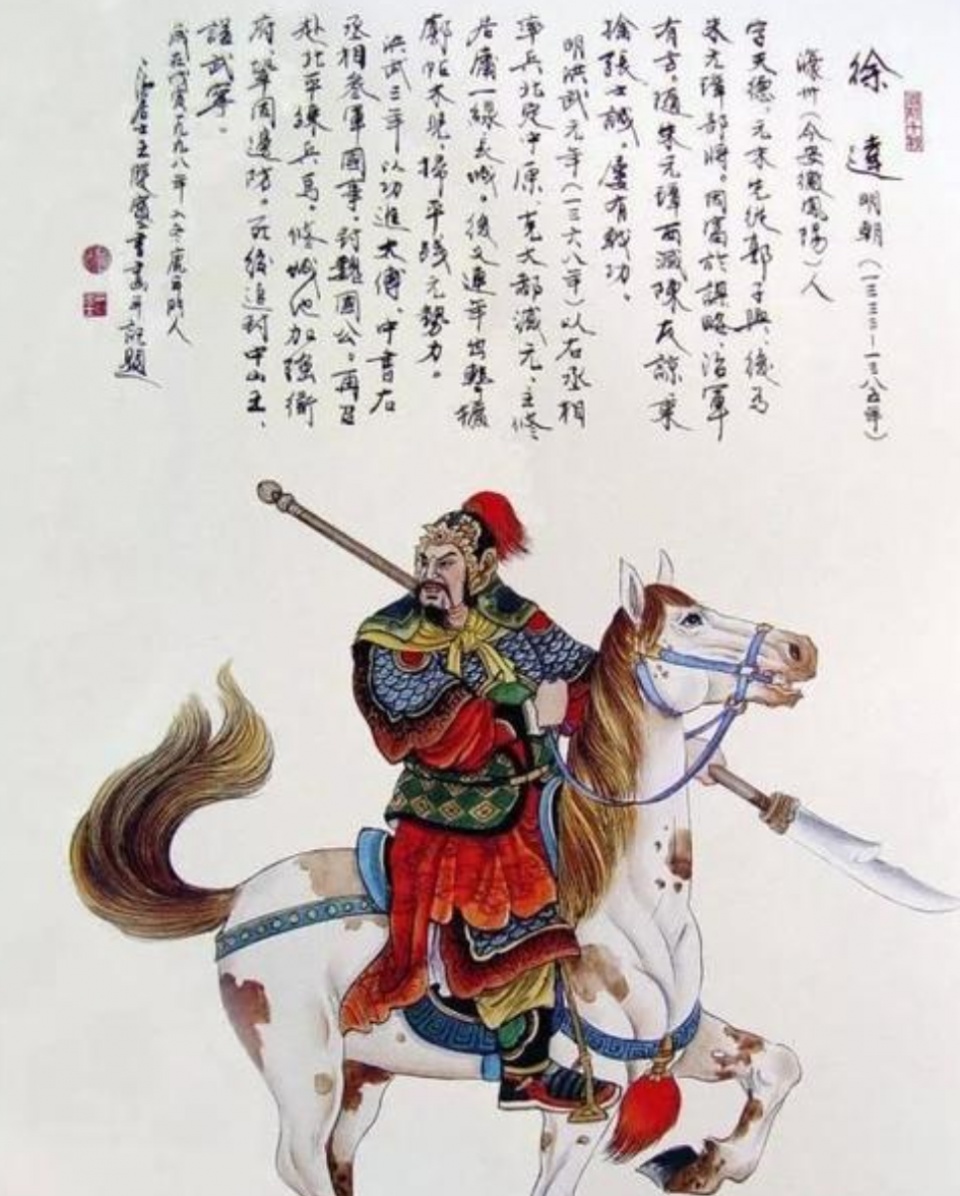 徐達 明朝（一三三二—一三八五年）
濠州（今安徽鳳陽）人
字天德。元末先從郭子興、後為
朱元璋部將。因富於謀略、治軍
有方。隨朱元璋西滅陳友諒東
擒張士誠。屢有戰功。
明洪武元年（一三六八年）以右丞相
率兵北定中原、克大都滅元、主修
居庸一線長城。後又連年出擊擴
廓帖木兒、掃平殘元勢力。
洪武三年以功進太傅、中書右
丞相參軍國事、封魏國公。再召
赴北平練兵馬。修城池加強衛
府鞏固邊防。死後追封中山王、
諡武寧。
歲在戊寅一九九八年
居士王雙寬書畫并記題